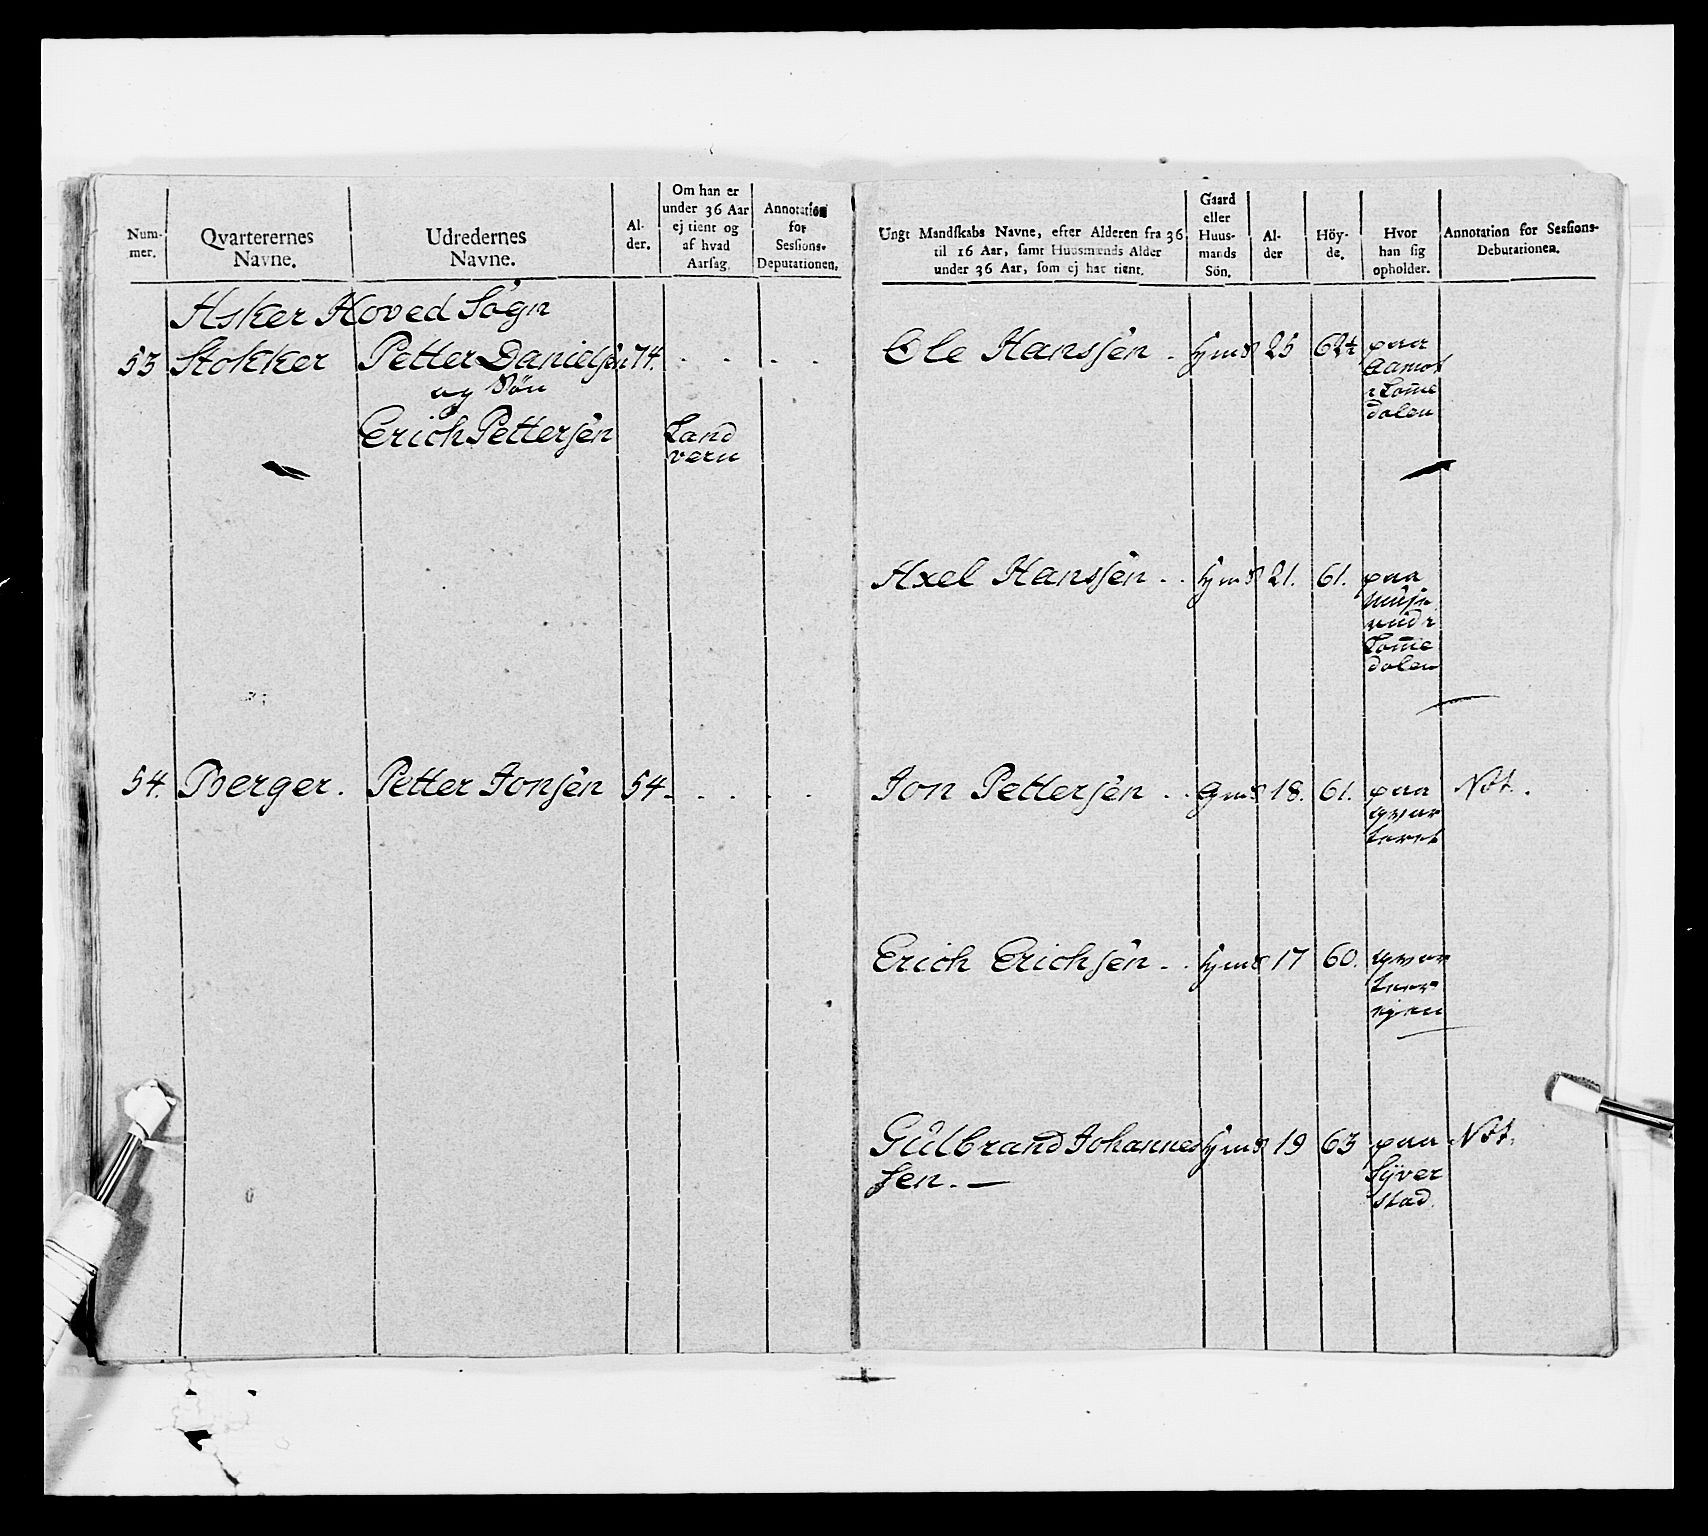 Num-
mer.
Qvarterernes
Navne.
Udredernes
Navne.
Al-
der.
Om han er
under 36 Aar
ej tient og
af hvad
Aarsag.
Annotation
for
Sessions-
Deputationen.
Ungt Mandskabs Navne, efter Alderen fra 36
til 16 Aar, samt Huusmænds Alder
under 36 Aar, som ej har tient.
Gaard
eller
Huus-
mands
Sön.
Al-
der
Höy-
de.
Hvor
han sig
opholder.
Annotation for Sessions-
Deputationen.
Asker Hoved Sogn
53 Stokker Petter Danielsen 74.
og Søn
Erich Pettersen
Land
vern
Ole Hanssen . hmS 25 62¼ paa
Aamot
i Lom̅e
dalen
Axel Hanssen . . hmS 21. 61. paa
rud i
Lom̅e
dalen
54. Berger. Petter Jonsen 54. . . . .
Jon Pettersen . . gmS 18. 61. paa
qvar
teret
Not.
Erich Erichsen . . hmS 17 60. qvar
teer
ejen
Gulbrand Johannes
sen. — hmS 19 63 paa
Syver
stad.
Not.